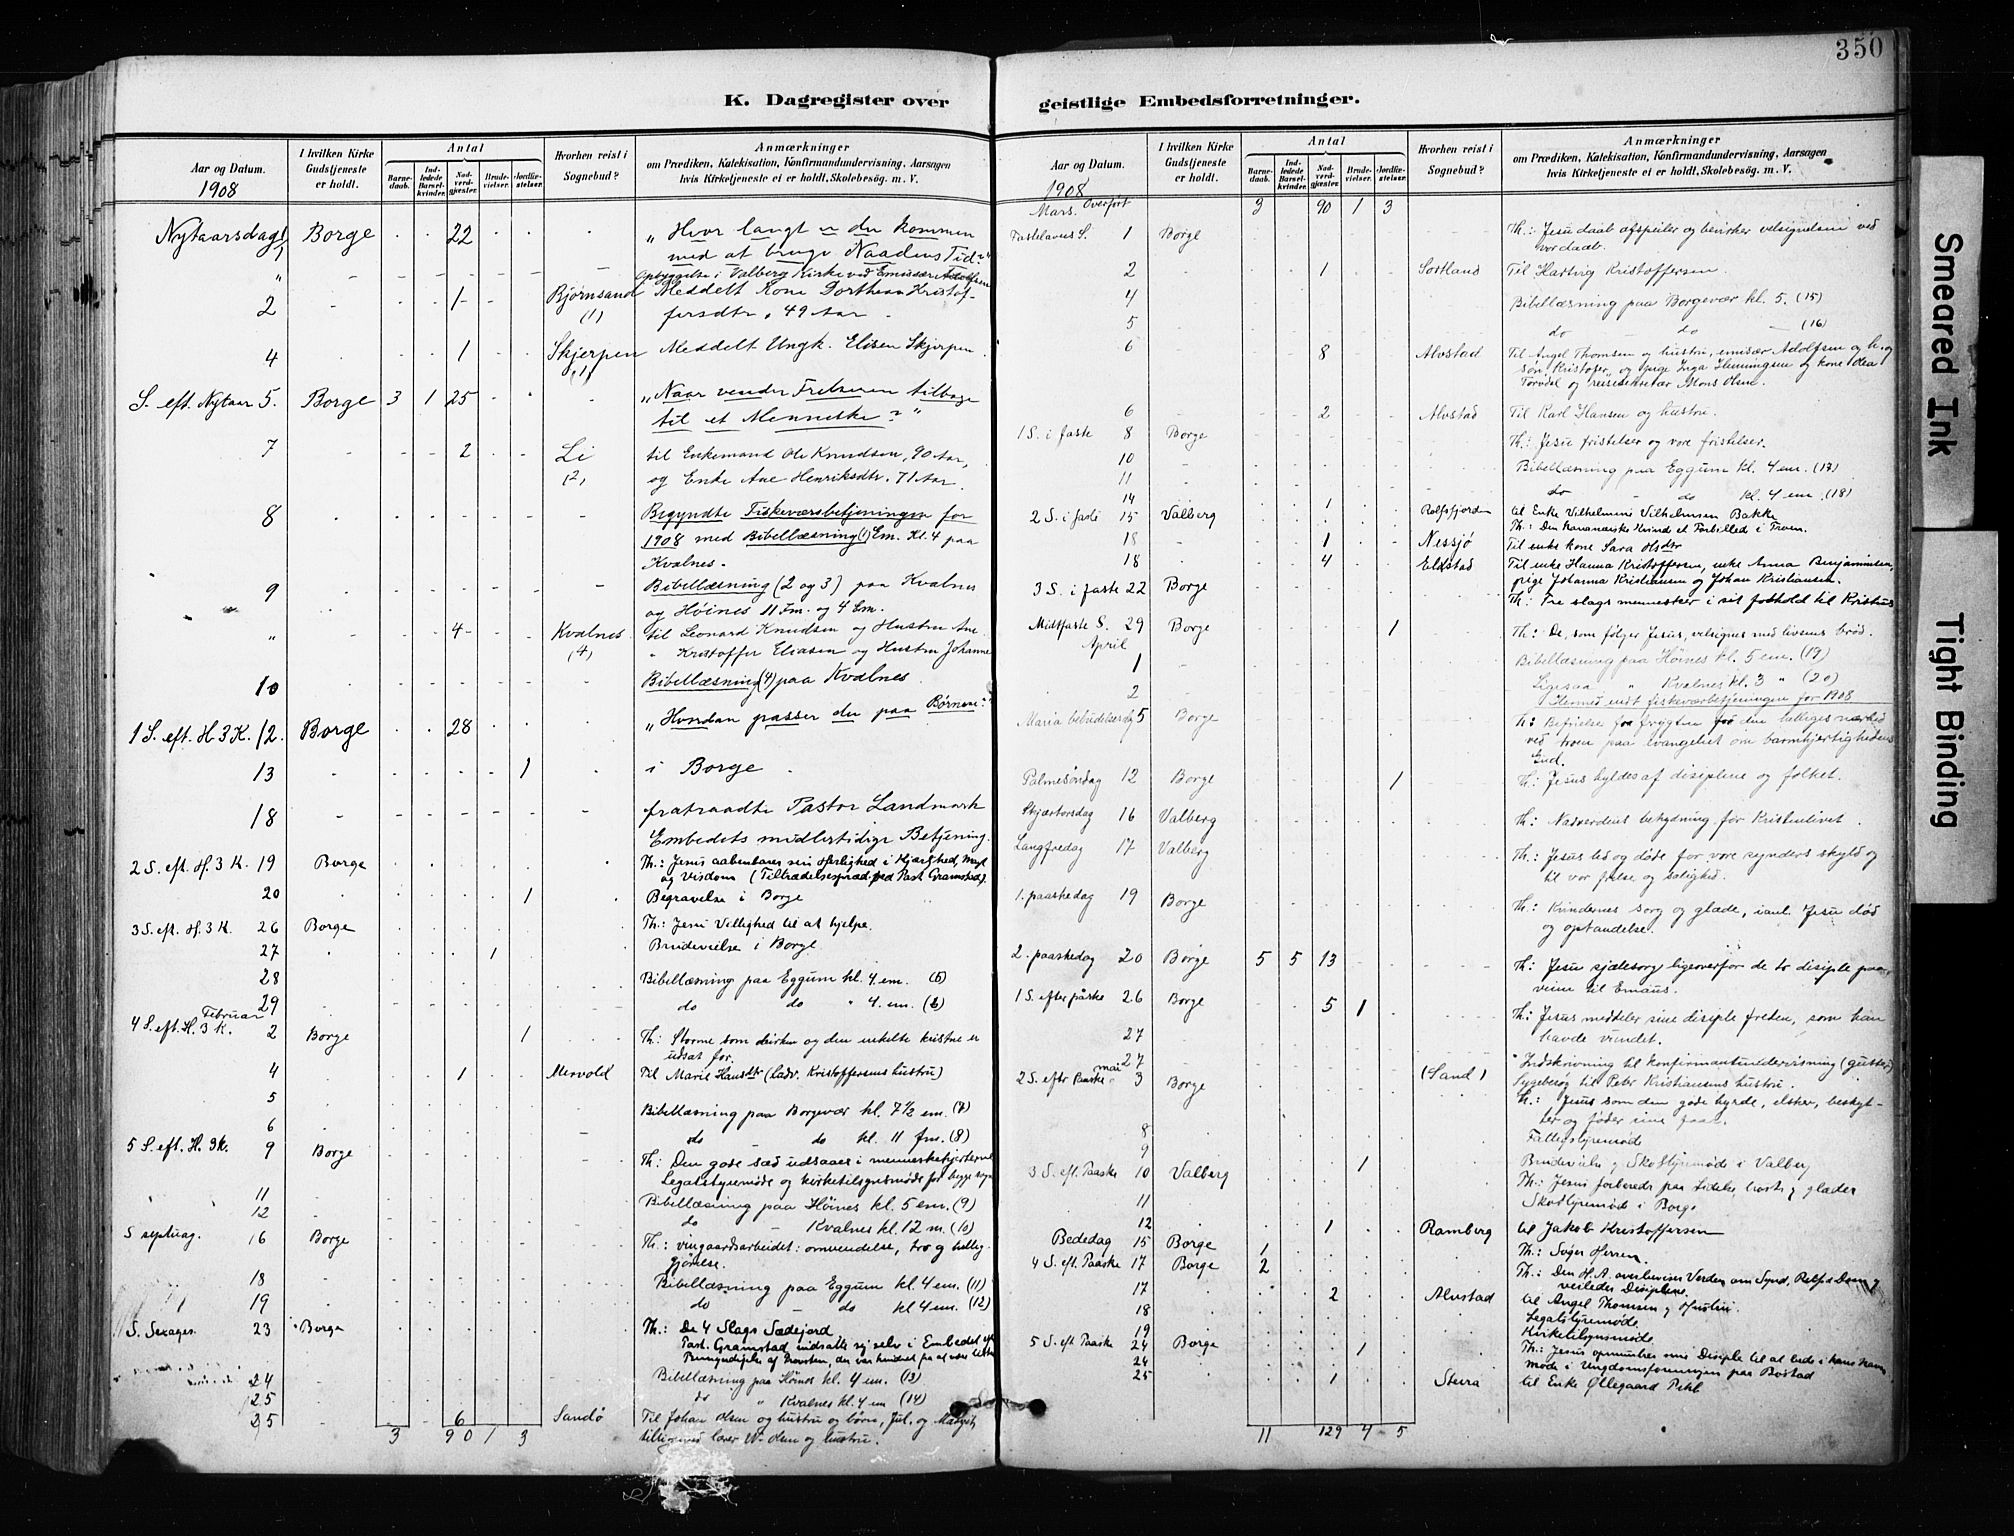 350
K. Dagregister over geistlige Embedsforretninger.
Aar og Datum. 1908
I hvilken Kirke Gudstjeneste er holdt.
Antal
Barnedaab.
Indledede Barselkvinder.
Nadverdgjester.
Brudevielser.
Jordfæstelser.
Hvorhen reist i Sognebud?
Anmærkninger
om Prædiken, Katekisation, Konfirmandundervisning, Aarsagen
hvis Kirketjeneste ei er holdt, Skolebesøg. m. V.
Nytaarsdag 1 Borge 22 „Hvor langt er du kommen
med at bruge Naadens Tid?"
" Opbyggelse i Valberg Kirke ved Emissær Adolfsen
2 1 Bjørnsand (1) Meddelt Kone Dorthea Kristof-
fersdtr, 49 Aar
4 1 Skjerpen (1) Meddelt Ungk. Elisen Skjerpen
S. eft. Nytaar 5. Borge 3 1 25 „Naar vender Frelseren tilbage
til et Menneske?"
7 2 Li (2) til Enkemand Ole Knudsen, 90 Aar,
og Enke Ane Henriksdtr. 71 Aar.
8 Begyndte Fiskeværsbetjeningen for
1908 med Bibellæsning (1) Em. Kl. 4 paa
Kvalnes.
9 Bibellæsning (2 og 3) paa Kvalnes
og Høines 11 Fm. og 4 Em.
" 4 Kvalnes (4) til Leonard Knudsen og Hustru Ane
" Kristoffer Eliasen og Hustru Johanne
10 Bibellæsning (4) paa Kvalnes.
1 S. eft. H. 3 K. 12. Borge 28 „Hvordan passer du paa Børnene?"
13 1 i Borge.
18 fratraadte Pastor Landmark
Embedets midlertidige Betjening.
2 S. eft. H. 3 K. 19 Borge Th.: Jesus aabenbarer sin Herlighed i Kjærlighed, Magt
og Visdom (Tiltrædelsespræd. ved Past Gramstad).
20 1 Begravelse i Borge
3 S. eft. H. 3 K. 26 Borge Th.: Jesu Villighed til at hjelpe.
27 1 Brudevielse i Borge.
28 Bibellæsning paa Eggum kl. 4 em. (5)
29 do do " 4 em. (6)
Februar
4 S. eft. H. 3 K. 2 Borge 1 Th.: Storme som kirken og den enkelte kristne er
udsat for.
4 1 Mervold Til Marie Hansdtr (Ladv. Kristoffersens hustru)
5 Bibellæsning paa Borgevær kl. 7½ em. (7)
6 do do kl. 11 fm. (8)
5 S. eft. H. 3 K. 9 Borge Th.: Den gode sæd udsaaes i menneskehjerterne
Legatstyremøde og kirketilsynsmøde for begge sogn
11 Bibellæsning paa Høines kl. 5 em. (9)
12 do Kvalnes kl. 12 m. (10)
S septuag. 16 Borge Th.: vingaardsarbeidet: omvendelse, tro og hellig-
gjørelse.
18 Bibellæsning paa Eggum kl. 4 em. (11)
19 do do kl 4 em. (12)
S. Sexages. 23 Borge Th.: De 4 Slags Sædejord
Past. Gramstad indsatte sig selv i Embedet eft
24 Bibellæsning paa Høines kl. 4 em. (13)
25 do " Kvalnes kl. 4 em (14)
25 6 Sandø Til Johan Olsen og hustru og børn, Jul. og
tilligemed lærer W. Olsen og hustru.
3 90 1 3
Aar og Datum. 1908
I hvilken Kirke Gudstjeneste er holdt.
Antal
Barnedaab.
Indledede Barselkvinder.
Nadverdgjester.
Brudevielser.
Jordfæstelser.
Hvorhen reist i Sognebud?
Anmærkninger
om Prædiken, Katekisation, Konfirmandundervisning, Aarsagen
hvis Kirketjeneste ei er holdt, Skolebesøg. m. V.
Mars. Overført 3 90 1 3
Fastelavns S. 1 Borge Th.: Jesu daab afspeiler og bevirker velsignelsen ved
vor daab.
2 1 Sortland Til Hartvig Kristoffersen.
4 Bibellæsning paa Borgevær kl. 5. (15)
5 do do (16)
6 8 Alvstad Til Angel Thomsen og hustru, emisær Adolfsen og h. og
søn Kristofer, og pige Inga Henningsen og kone Olea
Torvdal og reisesekretær Mons Olsen.
6 2 Alvstad Til Karl Hansen og hustru.
1 S. i faste 8 Borge Th.: Jesu fristelser og vore fristelser.
10 Bibellæsning paa Eggum kl. 4 em. (17)
11 do do kl. 4 em. (18)
14 1 Rolfsfjorden til Enke Vilhelmine Vilhelmsen Bakke
2 S. i faste 15 Valberg Th.: Den kananæiske Kvinde et Forbilled i Troen.
18 1 Nessjø Til enke kone Sara Olsdtr
18 4 Elstad Til enke Hanna Kristoffersen, enke Anna Benjaminsen,
pige Johanna Kristiansen og Johan Kristiansen.
3 S. i faste 22 Borge Th.: Tre slags mennesker i sit forhold til Kristus
Midtfaste S. 29 Borge 1 Th.: De, som følger Jesus, velsignes med livsens brød.
April
1 Bibellæsning paa Høines kl. 5 em. (19)
2 Ligesaa " Kvalnes kl. 3 " (20)
Hermed endt fiskeværbetjeningen for 1908
Maria bebudelsesdg 5 Borge Th: Befrielse fra frygten for den helliges nærhed
ved troen paa evangeliet om barmhjertighedens
Gud.
Palmesøndag 12 Borge 1 Th.: Jesus hyldes af disiplene og folket.
Skjærtorsdag 16 Valberg Th.: Nadverdens betydning for Kristenlivet.
Langfredag 17 Valberg Th.: Jesus led og døde for vore synders skyld og
til vor frelse og salighed.
1. paaskedag 19 Borge Th.: Kvindernes sorg og glæde, i anl. Jesu død
og opstandelse.
2. paaskedag 20 Borge 5 5 13 Th.: Jesu sjælesorg ligeoverfor de to disiple paa
veien til Emaus.
1 S. efter påske 26 Borge 5 1 Th.: Jesus meddeler sine disiple freden, som han
havde vundet.
27 Indskrivning til konfirmantundervisning (gutter)
27 (Sand) Sygebesøg til Peter Kristiansens hustru.
mai
2 S. efter Paaske 3 Borge Th.: Jesus som den gode hyrde, elsker, beskyt-
ter og føder sine faar.
8 Fattigstyremøde
9 1 Brudevielse og Skolstyremøde i Valberg
3 S. eft. Paaske 10 Valberg Th.: Jesus forbereder paa Lidelse, bort og glæder
11 Skolstyremøde i Borge
12 1 Ramberg til Jakob Kristoffersen
Bededag 15 Borge 1 Th.: Søger Herren
4 S. eft. Paaske 17 Borge 2 Th.: Den H. A. overbeviser Verden om Synd, Retfd. Dom og
veileder Disiplene.
17 2 Alvstad til Angel Thomsen og Hustru.
18 Legatstyremøde
19 Kirketilsynsmøde
5 S. eft Paaske 24 Borge 1 Th.: Jesus opmuntrer sine Disiple til at bede i hans Navn
24 møde i Ungdomsforeningen paa Bøstad
25 1 Steira til Enke Øllegaard Pehl
11 129 4 5
Smeared Ink
Tight Binding